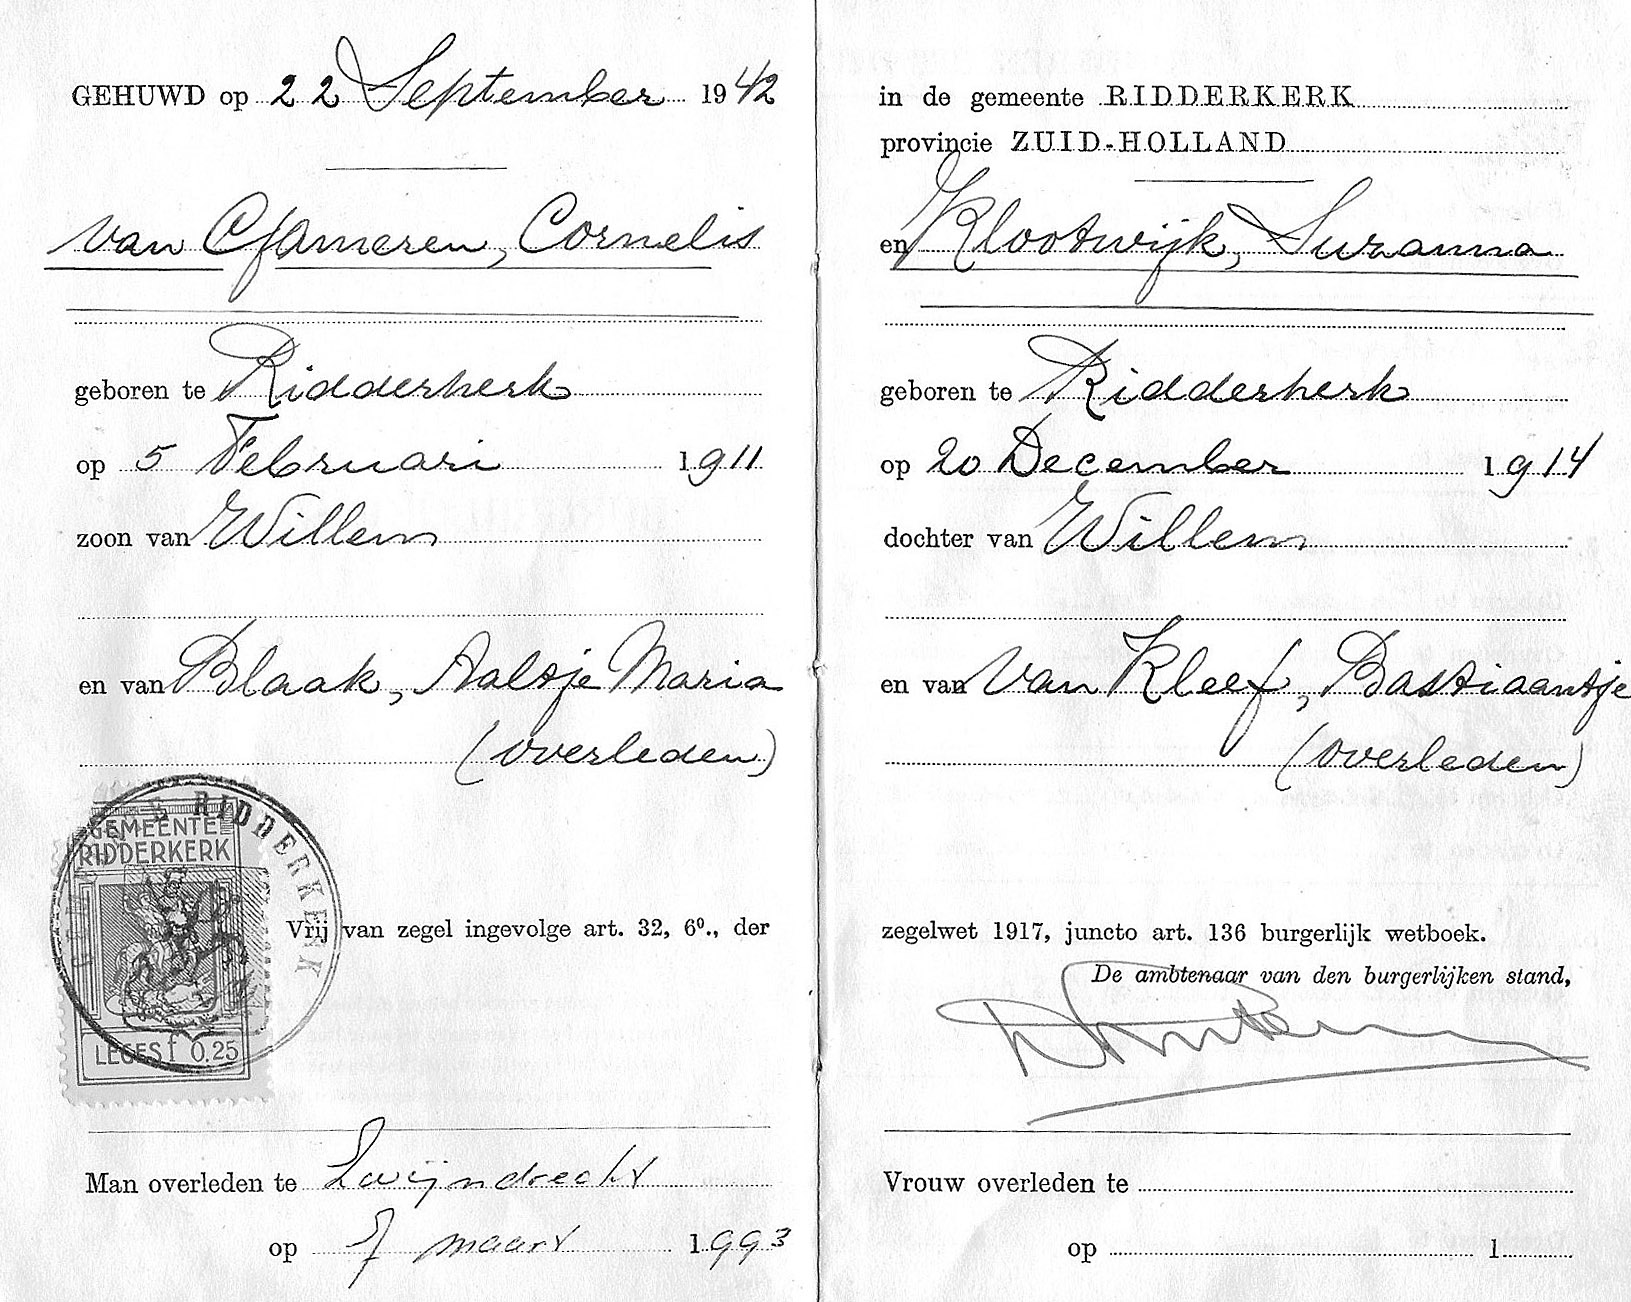 GEHUWD op 22 September 1942
van Gameren, Cornelis
geboren te Ridderkerk
op 5 Februari 1911
zoon van Willem
en van Blaak, Aaltje Maria
(overleden)
RIDDERKERK
GEMEENTE
RIDDERKERK
LEGES f 0.25
Vrij van zegel ingevolge art. 32, 6⁰., der
Man overleden te Zwijndrecht
op 7 maart 1993
in de gemeente RIDDERKERK
provincie ZUID-HOLLAND
en Klootwijk, Suzanna
geboren te Ridderkerk
op 20 December 1914
dochter van Willem
en van van Kleef, Bastiaantje
(overleden)
zegelwet 1917, juncto art. 136 burgerlijk wetboek.
De ambtenaar van den burgerlijken stand,
Vrouw overleden te
op 1